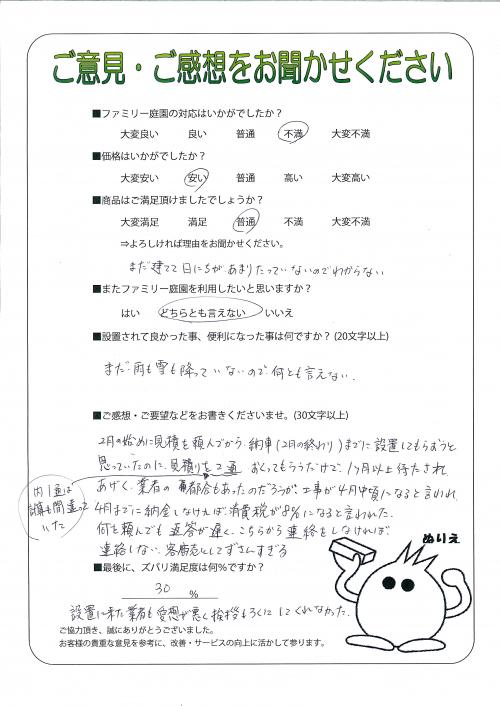 ご意見・ご感想をお聞かせください
■ファミリー庭園の対応はいかがでしたか？
大変良い 良い 普通 不満 大変不満
■価格はいかがでしたか？
大変安い 安い 普通 高い 大変高い
■商品はご満足頂けましたでしょうか？
大変満足 満足 普通 不満 大変不満
⇒よろしければ理由をお聞かせください。
まだ建てて日にちがあまりたっていないのでわからない
■またファミリー庭園を利用したいと思いますか？
はい どちらとも言えない いいえ
■設置されて良かった事、便利になった事は何ですか？(20文字以上)
まだ雨も雪も降っていないので何とも言えない.
■ご感想・ご要望などをお書きくださいませ。(30文字以上)
2月の始めに見積を頼んでから、納車(2月の終わり)までに設置してもらおうと
思っていたのに、見積りを2通おくってもらうだけで1ヶ月以上待たされ
あげく、業者の都合もあったのだろうが、工事が4月中頃になると言われ
4月までに納金しなければ消費税が8%になると言われた.
何を頼んでも返答が遅く、こちらから連絡をしなければ
連絡しない、客商売としてずさんすぎる
内1通は
計算も間違って
いた
ぬりえ
■最後に、ズバリ満足度は何％ですか？
30 %
設置に来た業者も愛想が悪く挨拶もろくにしてくれなかった.
ご協力頂き、誠にありがとうございました。
お客様の貴重な意見を参考に、改善・サービスの向上に活かして参ります。